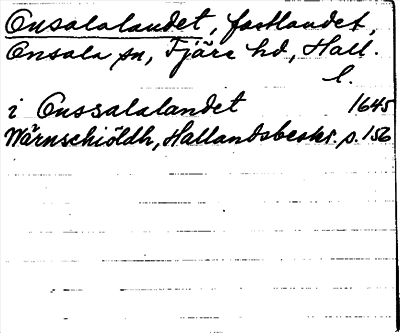 Onsalalandet, fastlandet,
Onsala sn, Fjäre hd, Hall.
l.
i Onssalalandet 1645
Wärnschiöldh, Hallandsbeskr. p. 156